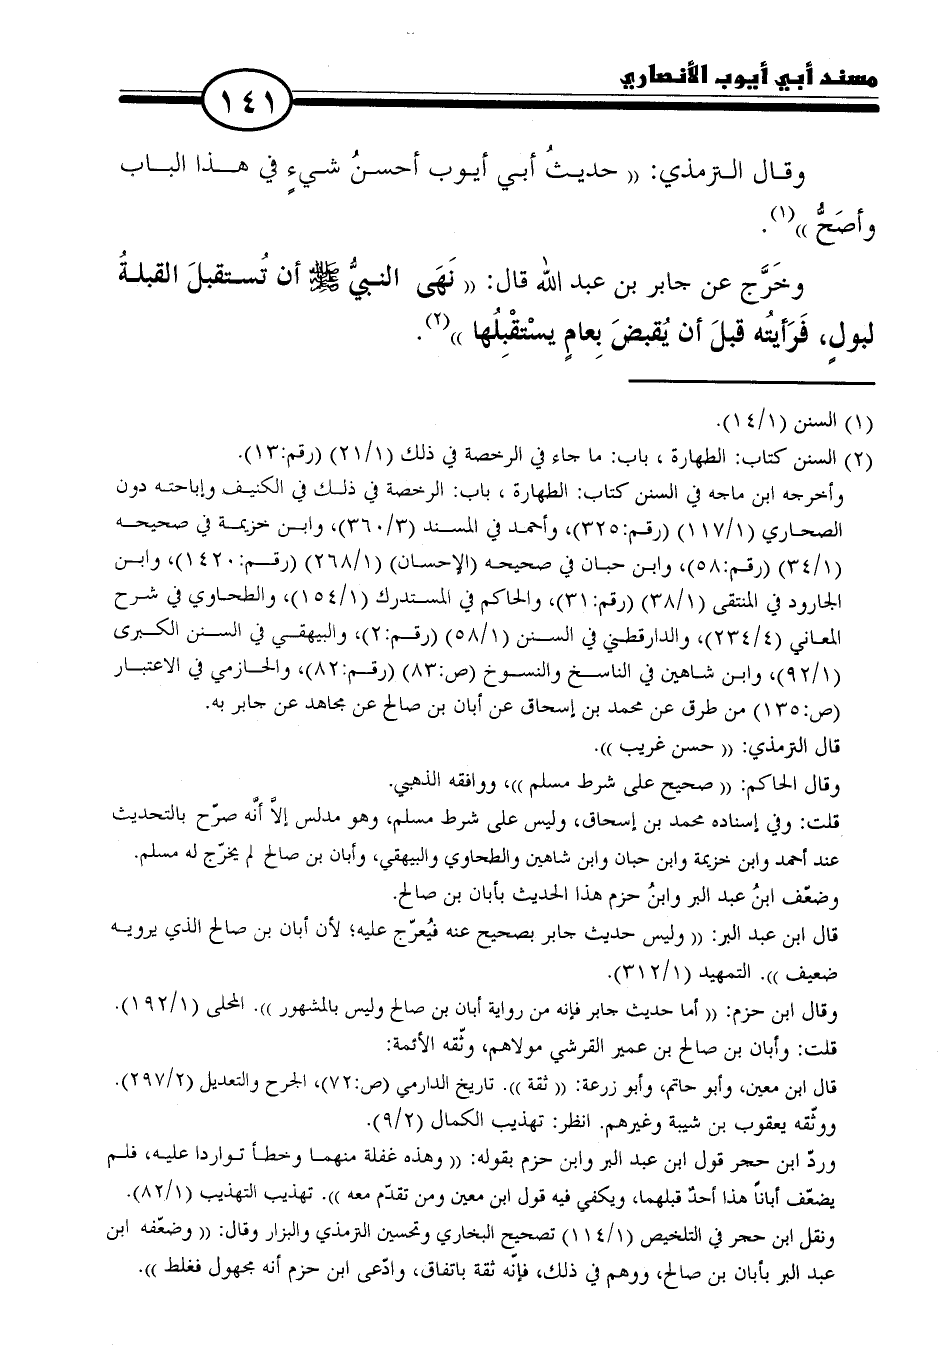 مسند أبي أيوب الأنصاري
١٤١
وقال الترمذي: (( حديثُ أبي أيوب أحسنُ شيءٍ في هذا الباب
وأصَحُّ ))(١).
وخَرَّج عن جابر بن عبد الله قال: (( نَهَى النبيُّ ﷺ أن تُستقبلَ القبلةُ
لبولٍ، فَرَأيتُه قبلَ أن يُقبضَ بِعامٍ يستَقْبِلُها ))(٢).
(١) السنن (١/١٤).
(٢) السنن كتاب: الطهارة ، باب: ما جاء في الرخصة في ذلك (٢١/١) (رقم:١٣).
وأخرجه ابن ماجه في السنن كتاب: الطهارة ، باب: الرخصة في ذلك في الكنيف وإباحته دون
الصحاري (١١٧/١) (رقم:٣٢٥)، وأحمد في المسند (٣٦٠/٣)، وابن خزيمة في صحيحه
(٣٤/١) (رقم:٥٨)، وابن حبان في صحيحه (الإحسان) (٢٦٨/١) (رقم:١٤٢٠)، وابن
الجارود في المنتقى (٣٨/١) (رقم:٣١)، والحاكم في المستدرك (١٥٤/١)، والطحاوي في شرح
المعاني (٢٣٤/٤)، والدارقطني في السنن (٥٨/١) (رقم:٢)، والبيهقي في السنن الكبرى
(٩٢/١)، وابن شاهين في الناسخ والنسوخ (ص:٨٣) (رقم:٨٢)، والحازمي في الاعتبار
(ص:١٣٥) من طرق عن محمد بن إسحاق عن أبان بن صالح عن مجاهد عن جابر به.
قال الترمذي: (( حسن غريب )).
وقال الحاكم: (( صحيح على شرط مسلم ))، ووافقه الذهبي.
قلت: وفي إسناده محمد بن إسحاق، وليس على شرط مسلم، وهو مدلس إلاَّ أنَّه صرّح بالتحديث
عند أحمد وابن خزيمة وابن حبان وابن شاهين والطحاوي والبيهقي، وأبان بن صالح لم يخرّج له مسلم.
وضعّف ابنُ عبد البر وابنُ حزم هذا الحديث بأبان بن صالح.
قال ابن عبد البر: (( وليس حديث جابر بصحيح عنه فيُعرّج عليه؛ لأن أبان بن صالح الذي يرويه
ضعيف )). التمهيد (٣١٢/١).
وقال ابن حزم: (( أما حديث جابر فإنه من رواية أبان بن صالح وليس بالمشهور )). المحلى (١٩٢/١).
قلت: وأبان بن صالح بن عمير القرشي مولاهم، وثّقه الأئمة:
قال ابن معين، وأبو حاتم، وأبو زرعة: (( ثقة )). تاريخ الدارمي (ص:٧٢)، الجرح والتعديل (٢٩٧/٢).
ووثّقه يعقوب بن شيبة وغيرهم. انظر: تهذيب الكمال (٩/٢).
وردّ ابن حجر قول ابن عبد البر وابن حزم بقوله: (( وهذه غفلة منهما وخطأ تواردا عليه، فلم
يضعّف أباناً هذا أحدٌ قبلهما، ويكفي فيه قول ابن معين ومن تقدّم معه )). تهذيب التهذيب (٨٢/١).
ونقل ابن حجر في التلخيص (١١٤/١) تصحيح البخاري وتحسين الترمذي والبزار وقال: (( وضعّفه ابن
عبد البر بأبان بن صالح، ووهم في ذلك، فإنّه ثقة باتفاق، وادّعى ابن حزم أنه مجهول فغلط )).